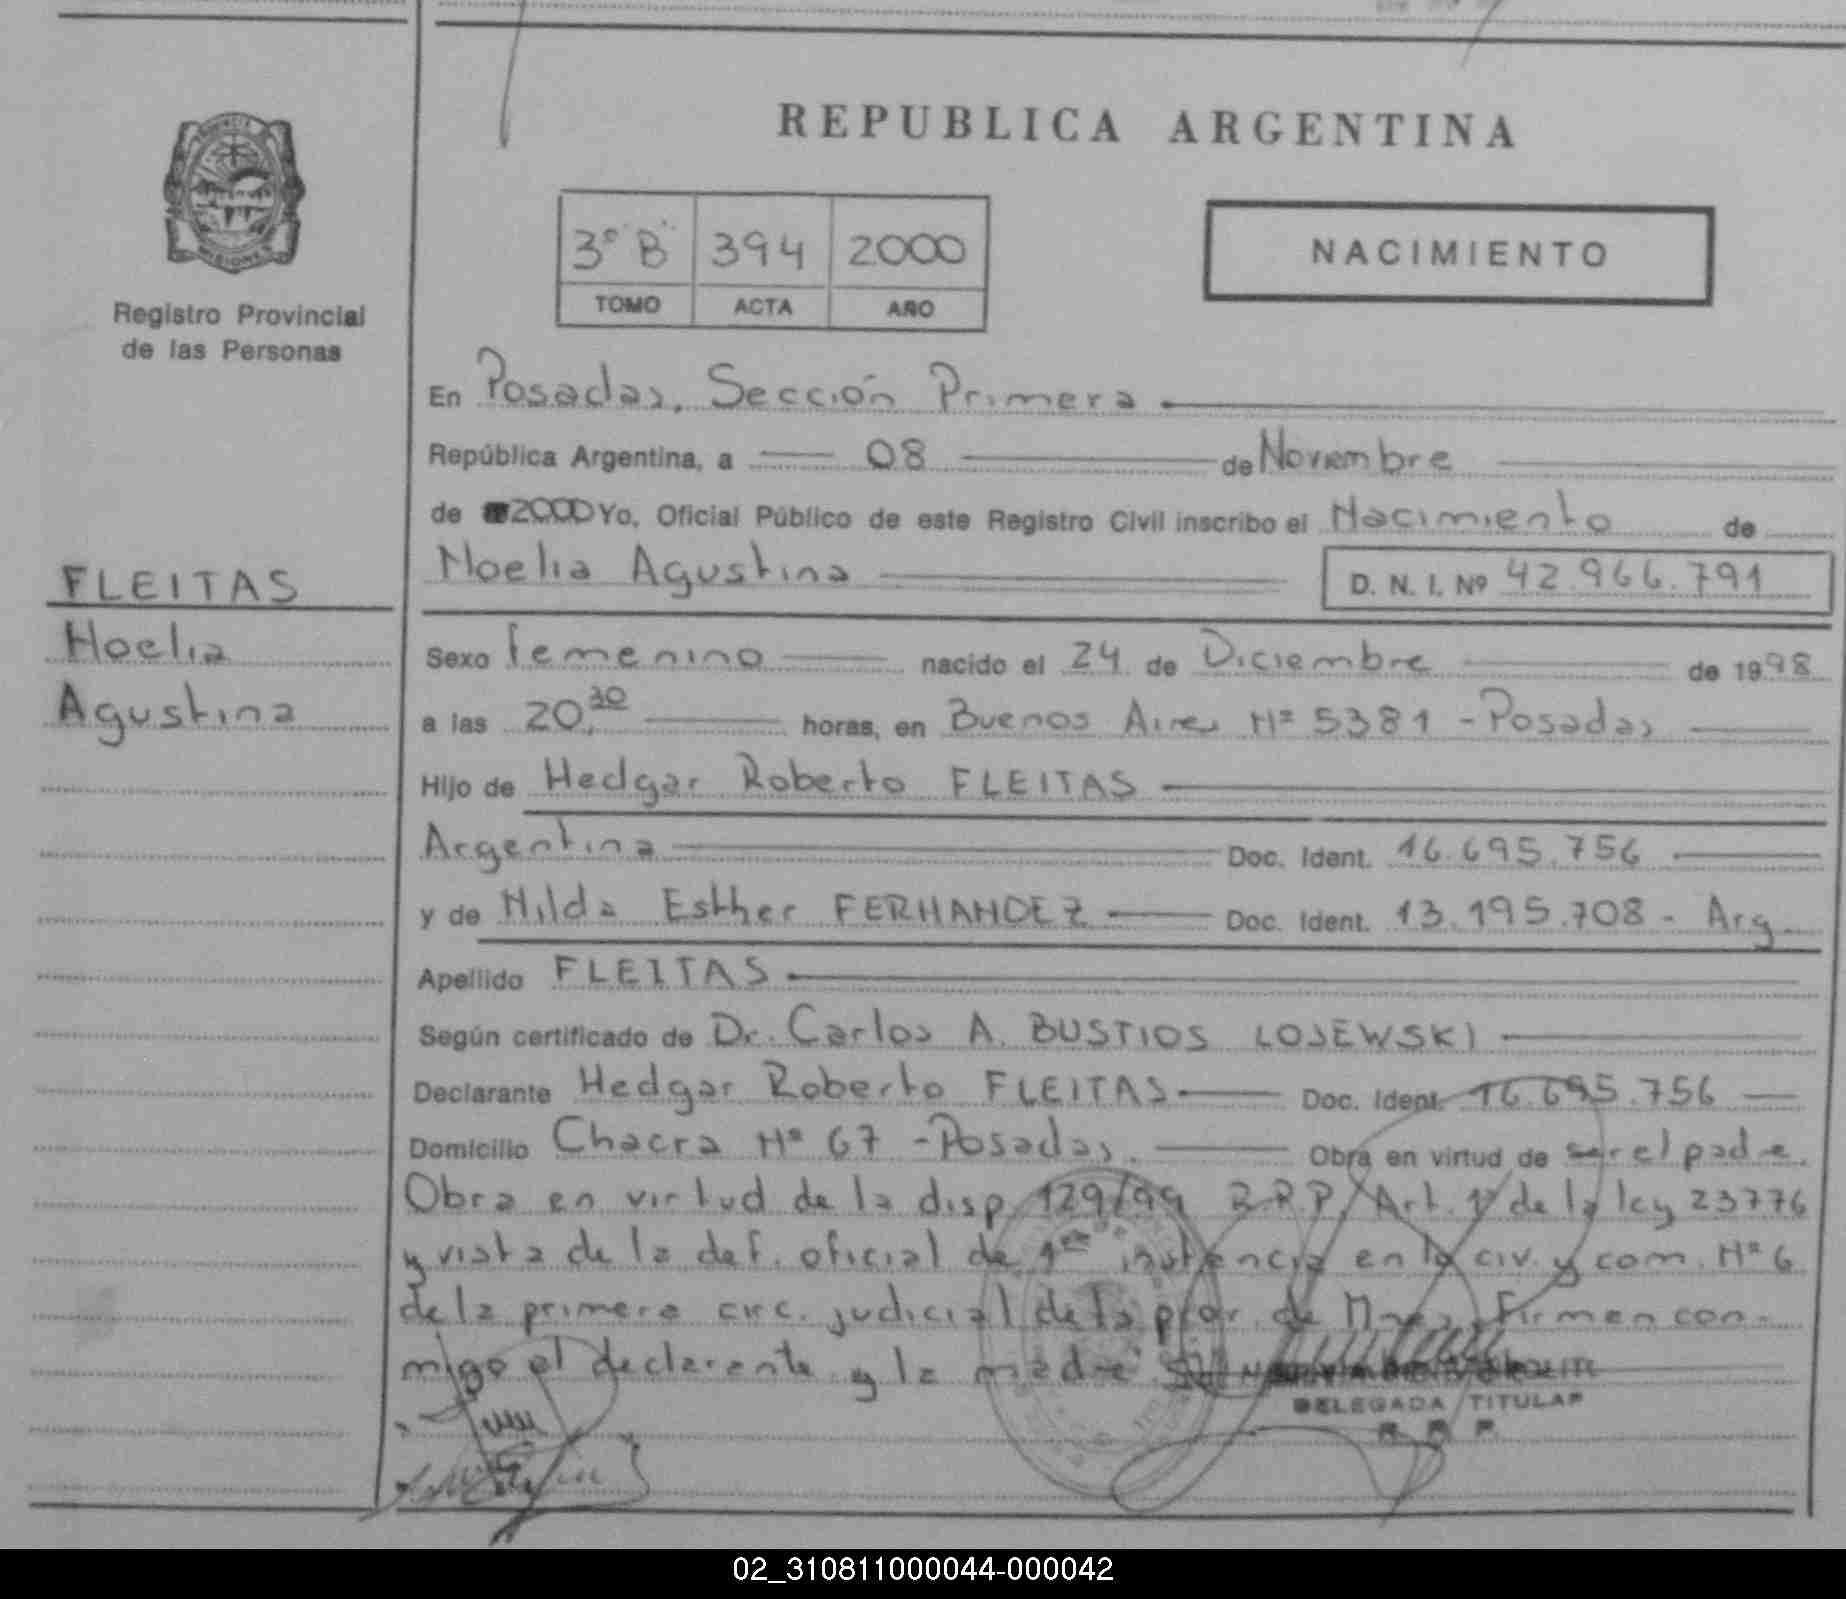 REPUBLICA ARGENTINA
3º "B" 394 2000
TOMO ACTA AÑO
NACIMIENTO
PROVINCIA
MISIONES
Registro Provincial
de las Personas
FLEITAS
Noelia
Agustina
En Posadas, Sección Primera
República Argentina, a 08 de Noviembre
de 2000 Yo, Oficial Público de este Registro Civil inscribo el Nacimiento de
Noelia Agustina D. N. I. Nº 42.966.791
Sexo femenino nacido el 24 de Diciembre de 1998
a las 20,30 horas, en Buenos Aires Nº 5381 - Posadas
Hijo de Hedgar Roberto FLEITAS
Argentina Doc. Ident. 16.695.756
y de Nilda Esther FERNANDEZ Doc. Ident. 13.195.708 - Arg
Apellido FLEITAS
Según certificado de Dr. Carlos A. BUSTIOS LOSEWSKI
Declarante Hedgar Roberto FLEITAS Doc. Ident. 16.695.756
Domicilio Chacra Nº 67 - Posadas. Obra en virtud de ser el padre.
Obra en virtud de la disp. 129/99 R.P.P. Art. 1º de la ley 23776
y vista de la def. oficial de 1era instancia en lo civ. y com. Nº 6
de la primera circ. judicial de la prov. de Mnes. Firman con-
migo el declarante y la madre.
DELEGADA TITULAR
R P P
02_310811000044-000042